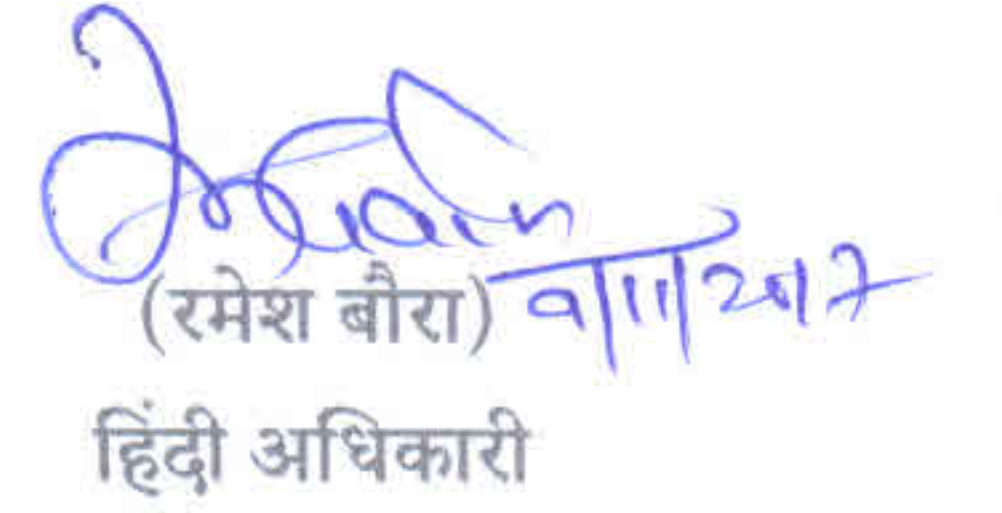 (रमेश बौरा) 9/11/2017
हिंदी अधिकारी